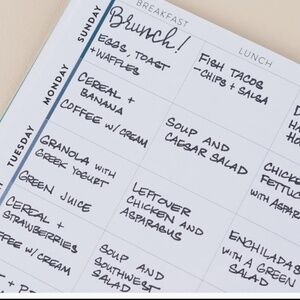 BREAKFAST
LUNCH
SUNDAY
Brunch!
EGGS, TOAST
+WAFFLES
FISH TACOS
-CHIPS + SALSA
MONDAY
CEREAL +
BANANA
COFFEE W/ CREAM
SOUP AND
CAESAR SALAD
CHICKEN
FETTUC
WITH ASPAR
TUESDAY
GRANOLA WITH
GREEK YOGURT
GREEN JUICE
LEFTOVER
CHICKEN AND
ASPARAGUS
ENCHILADAS
WITH A GREEN
SALAD
CEREAL +
STRAWBERRIES
COFFEE W/ CREAM
SOUP AND
SOUTHWEST
SALAD